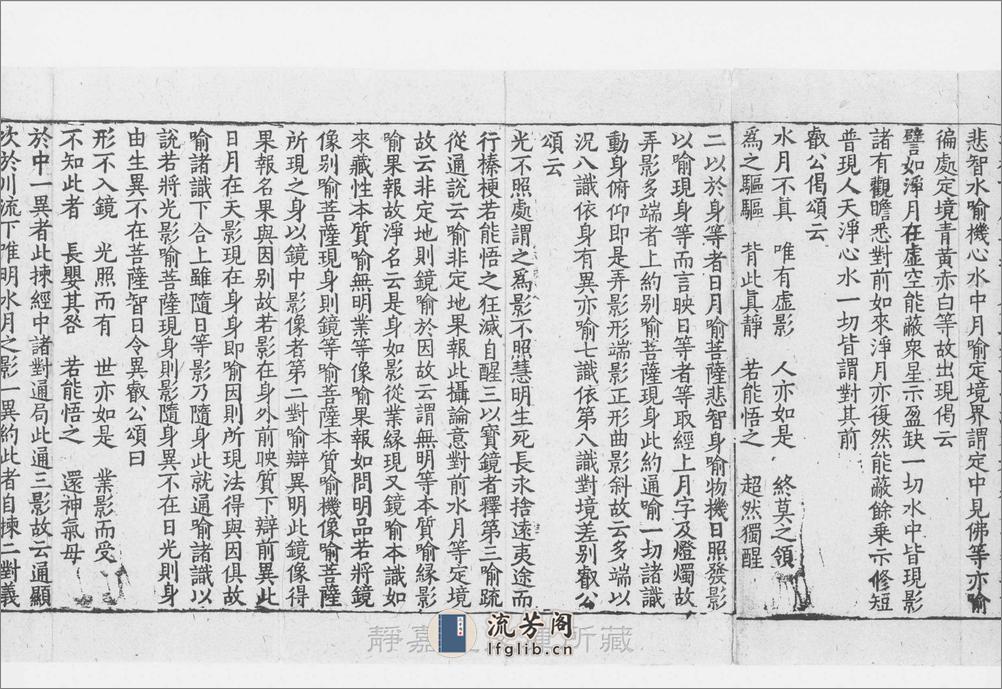 悲智水喻機心水中月喻定境界謂定中見佛等亦喻
徧處定境青黃赤白等故出現偈云
譬如淨月在虛空能蔽衆星示盈缺一切水中皆現影
諸有觀瞻悉對前如來淨月亦復然能蔽餘乘示修短
普現人天淨心水一切皆謂對其前
叡公偈頌云
水月不眞　唯有虛影　人亦如是　終莫之領
爲之驅驅　背此眞靜　若能悟之　超然獨醒
二以於身等者日月喻菩薩悲智身喻物機日照發影
以喻現身等而言映日等者等取經上月字及燈燭故
弄影多端者上約別喻菩薩現身此約通喻一切諸識
動身俯仰即是弄影形端影正形曲影斜故云多端以
況八識依身有異亦喻七識依第八識對境差別叡公
頌云
光不照處謂之爲影不照慧明生死長永捨遠夷途而
行榛梗若能悟之狂滅自醒三以寶鏡者釋第三喻疏
從通說云喻非定地果報此攝論意對前水月等定境
故云非定地則鏡喻於因故云謂無明等本質喻緣影
喻果報故淨名云是身如影從業緣現又鏡喻本識如
來藏性本質喻無明業等像喻果報如問明品若將鏡
像別喻菩薩現身則鏡等喻菩薩本質喻機像喻菩薩
所現之身以鏡中影像者第二對喻辯異明此鏡像得
果報名果與因別故若影在身外前映質下辯前異此
日月在天影現在身身即喻因則所現法得與因俱故
喻諸識下合上雖隨日等影乃隨身此就通喻諸識以
說若將光影喻菩薩現身則影隨身異不在日光則身
由生異不在菩薩智日令異叡公頌曰
形不入鏡　光照而有　世亦如是　業影而受
不知此者　長嬰其咎　若能悟之　還神氣母
於中一異者此揀經中諸對通局此通三影故云通顯
次於川流下唯明水月之影一異約此者自揀二對義
静嘉
所藏
流芳阁
lfglib.cn